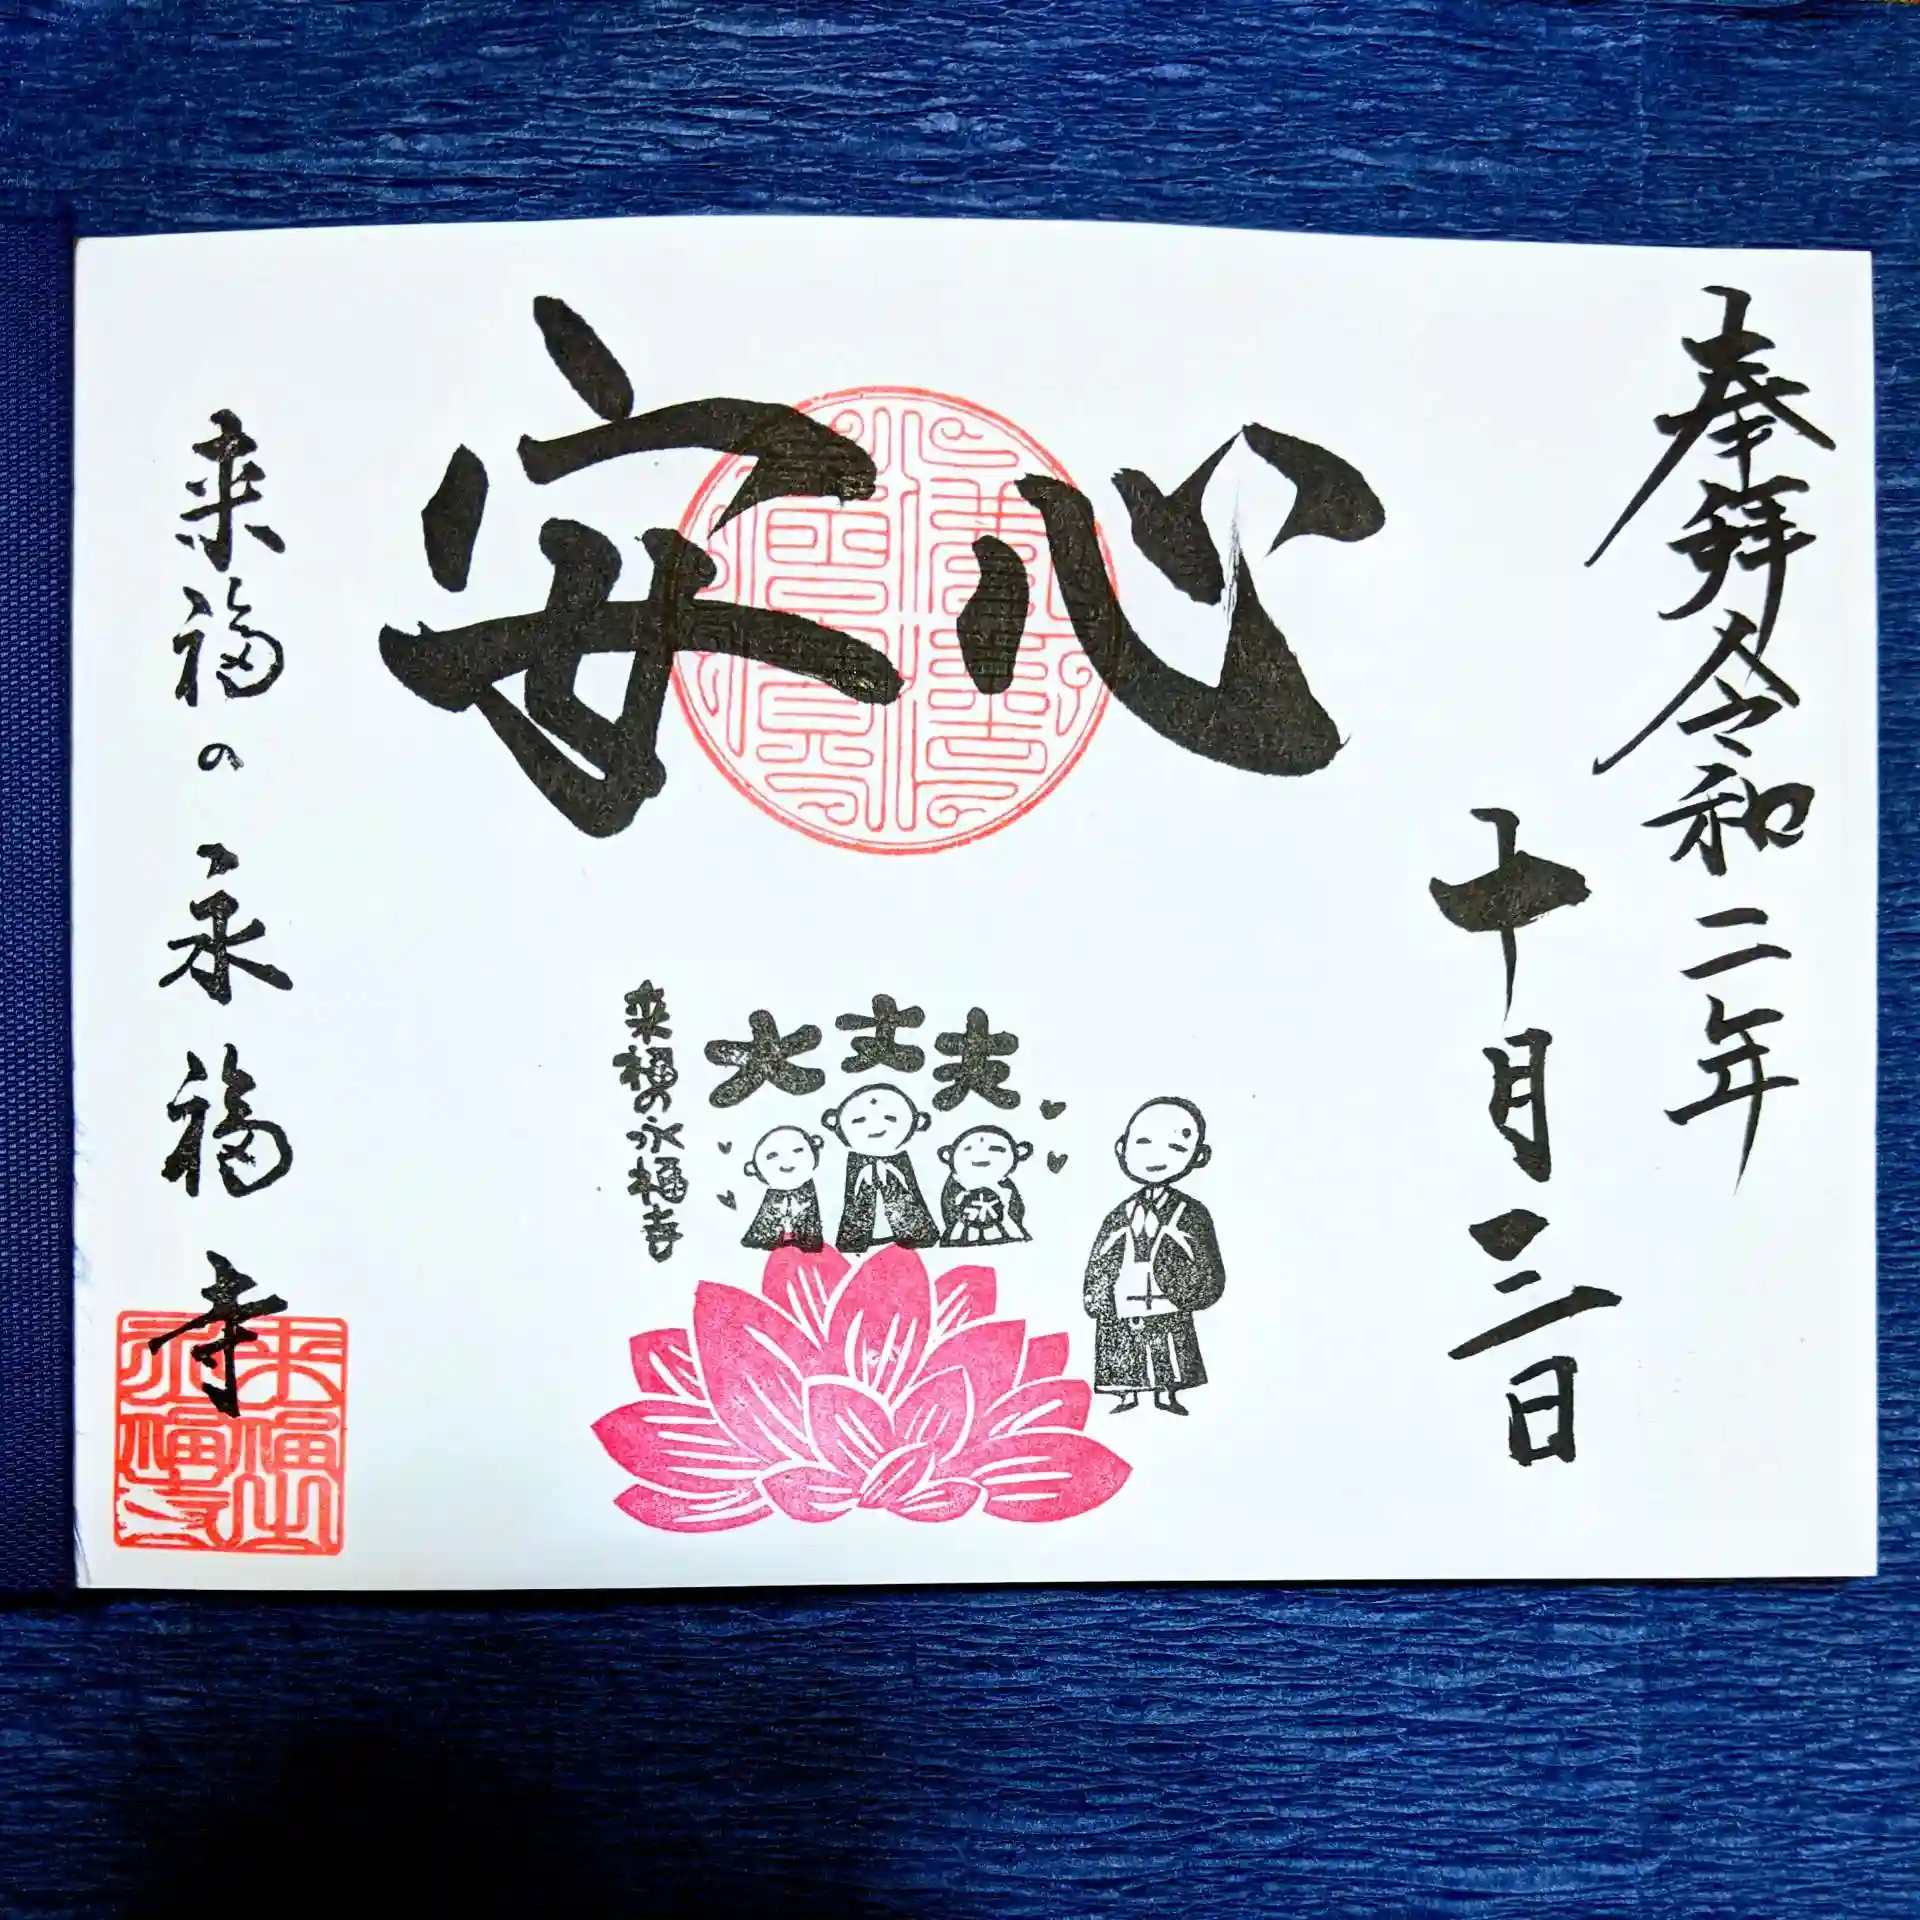 奉拝 令和二年
十月三日
安心
大丈夫
来福の永福寺
来福の永福寺
来福山
永福寺